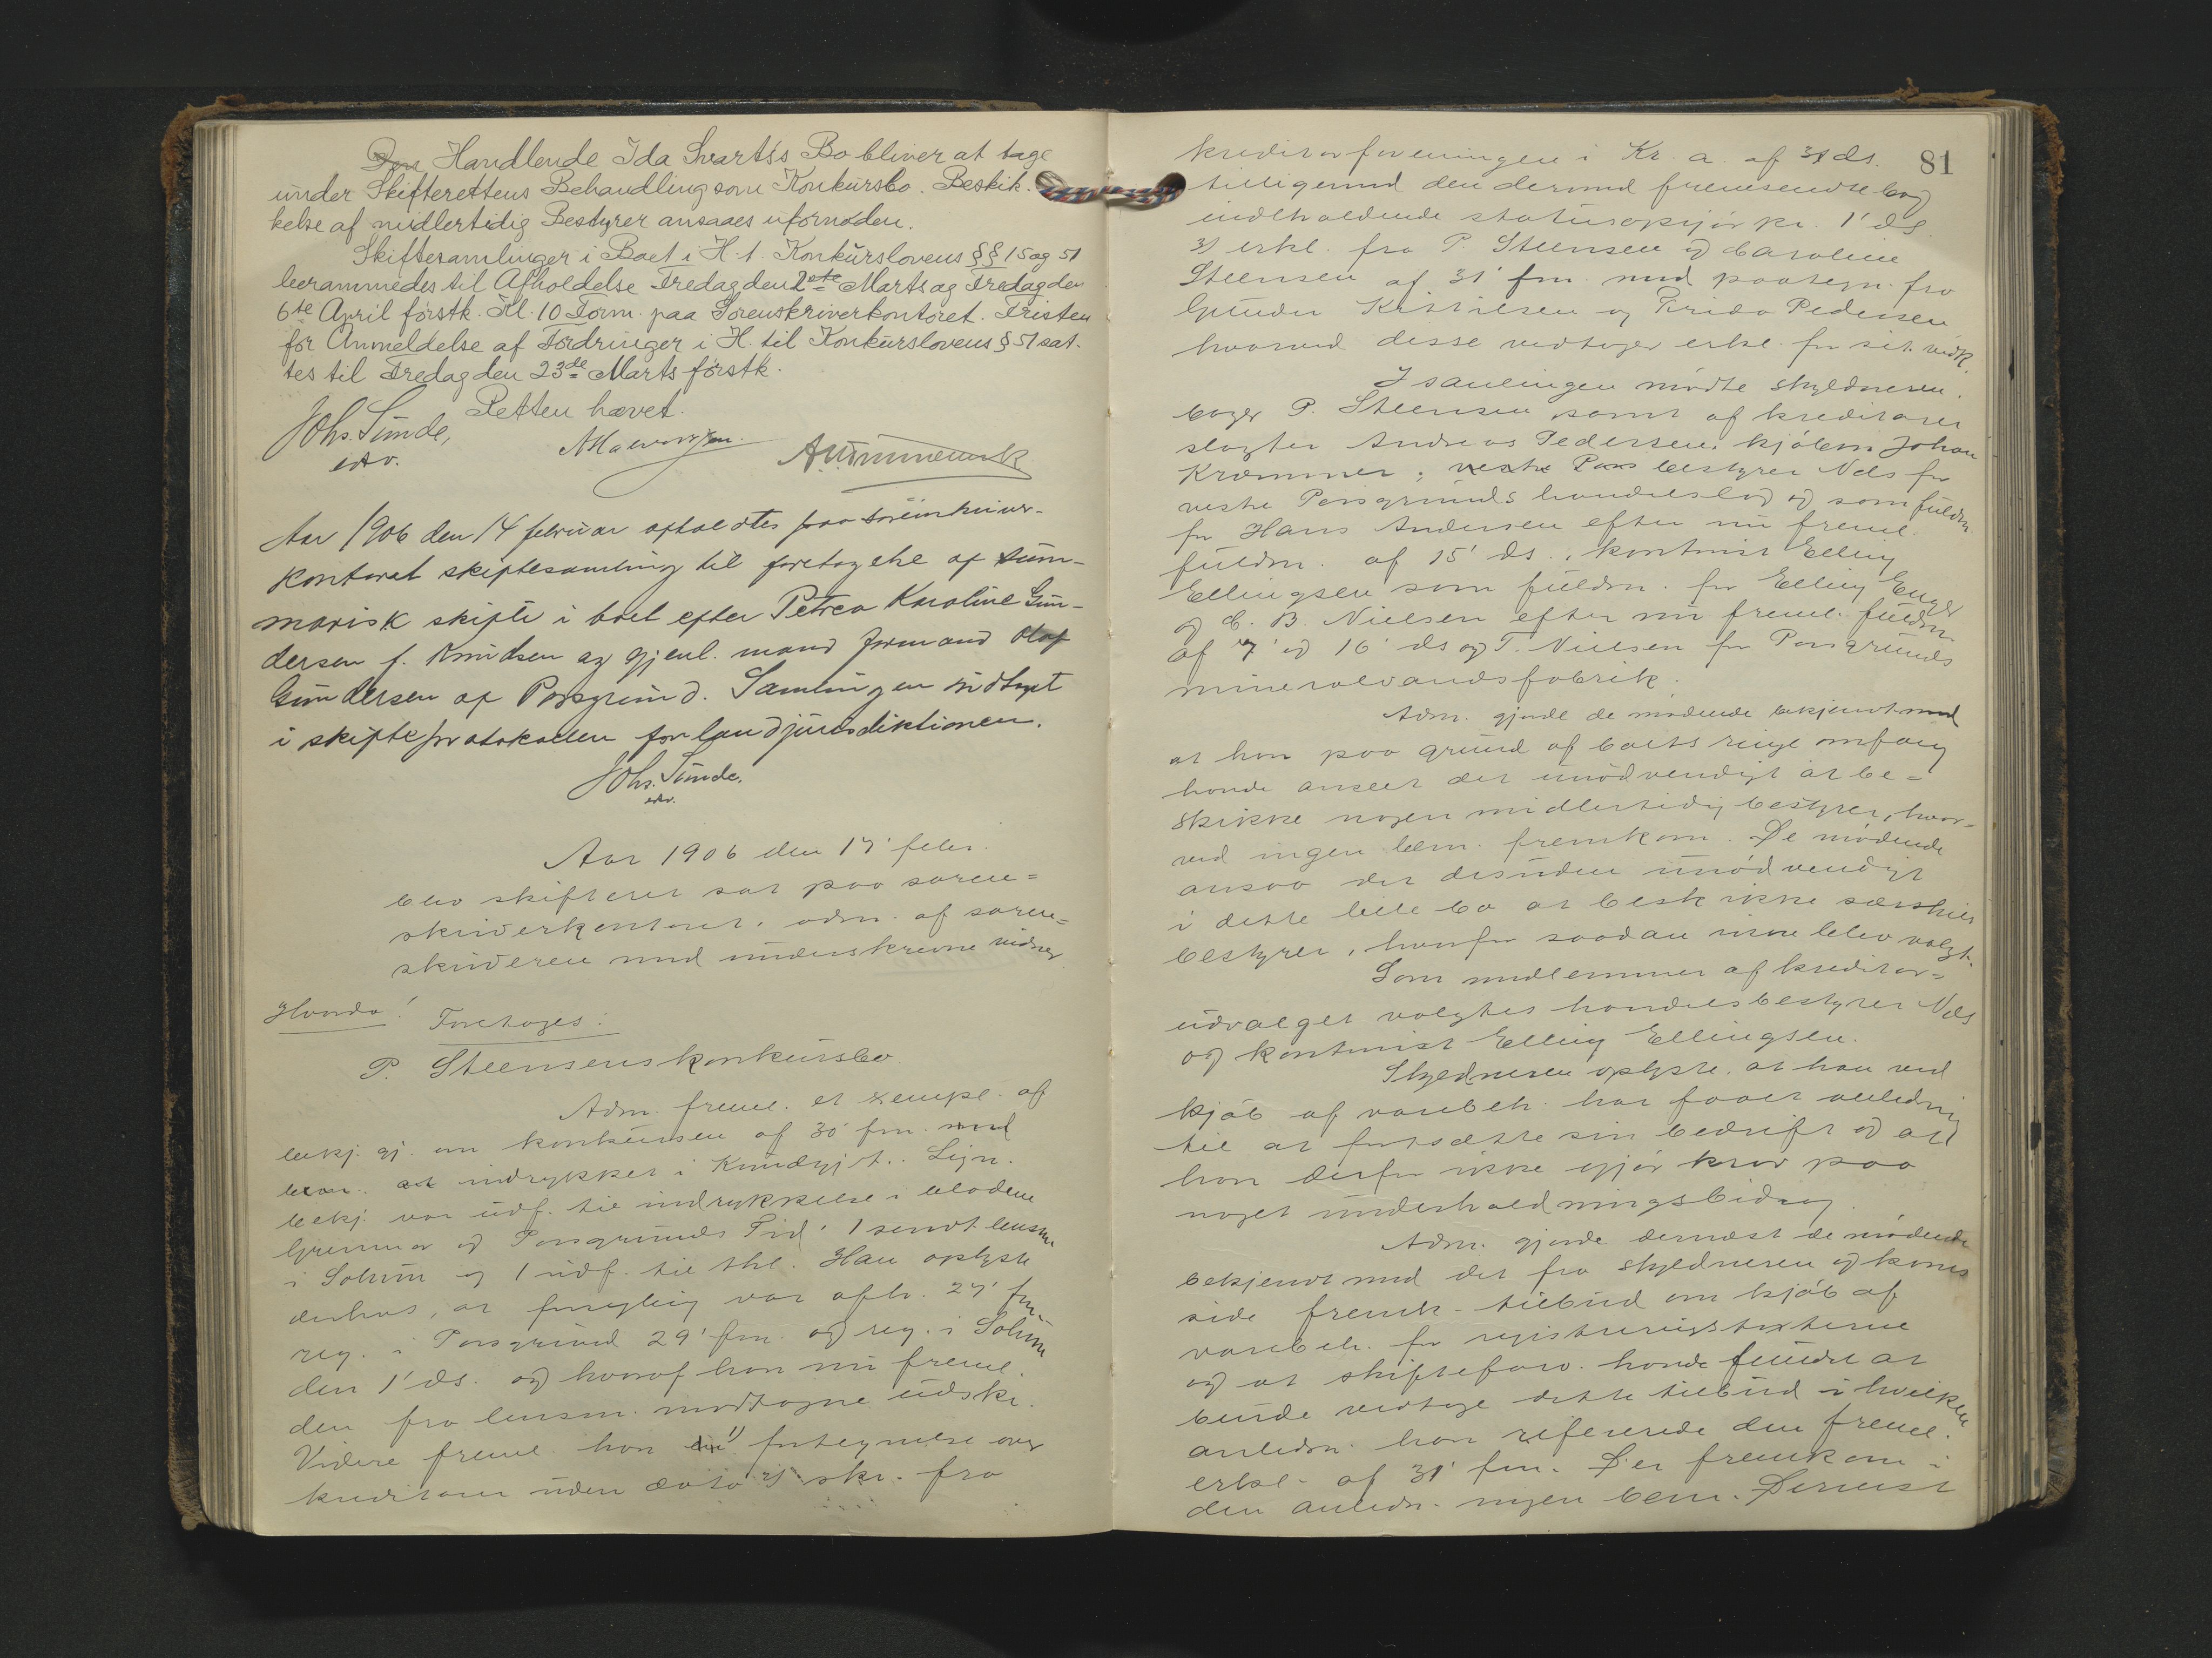 Handlende Ida Svartss Bo bliver at tage
under Skifterettens Behandling som Konkursbo. Beskik-
kelse af midlertidig Bestyrer ansaaes ufornøden.
Skiftesamlinger i Boet i H. t. Konkurslovens §§ 15 og 51
berammedes til Afholdelse Fredag den 2den Marts og Fredag den
6te April førstk. Kl. 10 Form. paa Sorenskriverkontoret. Fristen
for Anmeldelse af Fordringer i H. til Konkurslovens § 51 sat-
tes til Fredag den 23de Marts førstk.
Retten hævet.
Johs. Sunde,
edv.
Aar 1906 den 14 februar afholdtes paa sorenskriver-
kontoret skiftesamling til foretagelse af sum-
marisk skifte i boet efter Petrea Karoline Gun-
dersen f. Knudsen og gjenl. mand formand Olaf
Gundersen af Porsgrund. Samlingen indtaget
i skifteprotokollen for landjurisdiktionen.
Johs. Sunde.
edv.
Aar 1906 den 17' febr.
blev skifteret sat paa soren=
skriverkontoret, adm. af soren=
skriveren med underskrevne vidner
Hvorda!
Foretoges:
P. Steensens konkursbo
Adm. freml. et exempl. af
bekj. gj. om konkursen af 30' fm. med
bem. at indrykket i Kundgj.t. Lign.
bekj. var udf. til indrykkelse i bladene
Grenmar og Porsgrunds Tid. 1 sendt lensm.
i Solum og 1 udf. til thl. Han oplyste
derhos, at forsegling var afh. 27' fm.
reg. i Porsgrund 29' fm. og reg. i Solum
den 1' ds. og hvoraf han nu freml.
den fra lensm. modtagne udskr.
Videre freml. han 1) fortegnelse over
kreditorer uden dato 2) skr. fra
81
kreditorforeningen i Kr. a. af 31 ds.
tilligemed den dermed fremsendte bog
indeholdende statusopgjør pr. 1' ds.
3) erkl. fra P. Steensen og Caroline
Steensen af 31' fm. med paategn. fra
Gunder Kittilsen og Frida Pedersen
hvorved disse vedtager erkl. for sit vedk.
I samlingen mødte skyldneren,
bager P. Steensen samt af kreditorer
slagter Andreas Pedersen, kjøbm. Johan
Kræmmer, bestyrer Nels for
vestre Porsgrunds handelslag og som fuldm.
for Hans Andersen efter nu freml.
fuldm. af 15' ds., kontorist Elling
Ellingsen som fuldm. for Elling Enger
og C. B. Nielsen efter nu freml. fuldm.
af 7' og 16' ds og T. Nielsen for Porsgrunds
mineralvandsfabrik.
Adm. gjorde de mødende bekjendt med
at han paa grund af boets ringe omfang
havde anseet det unødvendigt at be=
skikke nogen midlertidig bestyrer, hvor=
ved ingen bem. fremkom. De mødende
ansaa det desuden unødvendigt
i dette lille bo at beskikke særskilt
bestyrer, hvorfor saadan ikke blev valgt.
Som medlemmer af kreditor=
udvalget valgtes handelsbestyrer Nels
og kontorist Elling Ellingsen.
Skyldneren oplyste, at han ved
kjøb af varebeh. har faaet anledning
til at fortsætte sin bedrift og at
han derfor ikke gjør krav paa
noget underholdningsbidrag.
Adm. gjorde dernæst de mødende
bekjendt med det fra skyldneren og kones
side fremk. tilbud om kjøb af
varebeh. for registreringstaxterne
og at skifteforv. havde fundet at
burde vedtage dette tilbud i hvilken
anledn. han refererede den freml.
erkl. af 31' fm. Der fremkom i
den anledn. ingen bem. Dernæst